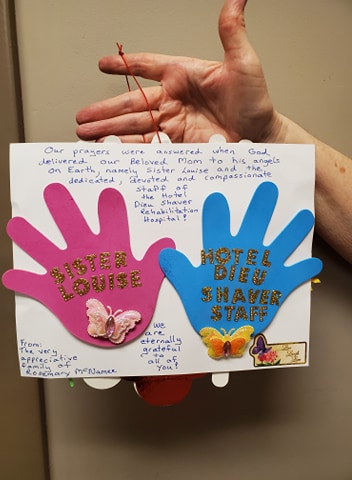 Our prayers were answered when God
delivered our Beloved Mom to his angels
on Earth, namely Sister Louise and the
dedicated, devoted and compassionate
staff of
the Hotel
Dieu Shaver
Rehabilitation
Hospital!
SISTER
LOUISE
HOTEL
DIEU
SHAVER
STAFF
We
are
eternally
grateful
to
all of
you!
From:
The very
appreciative
family of
Rosemary McNamee